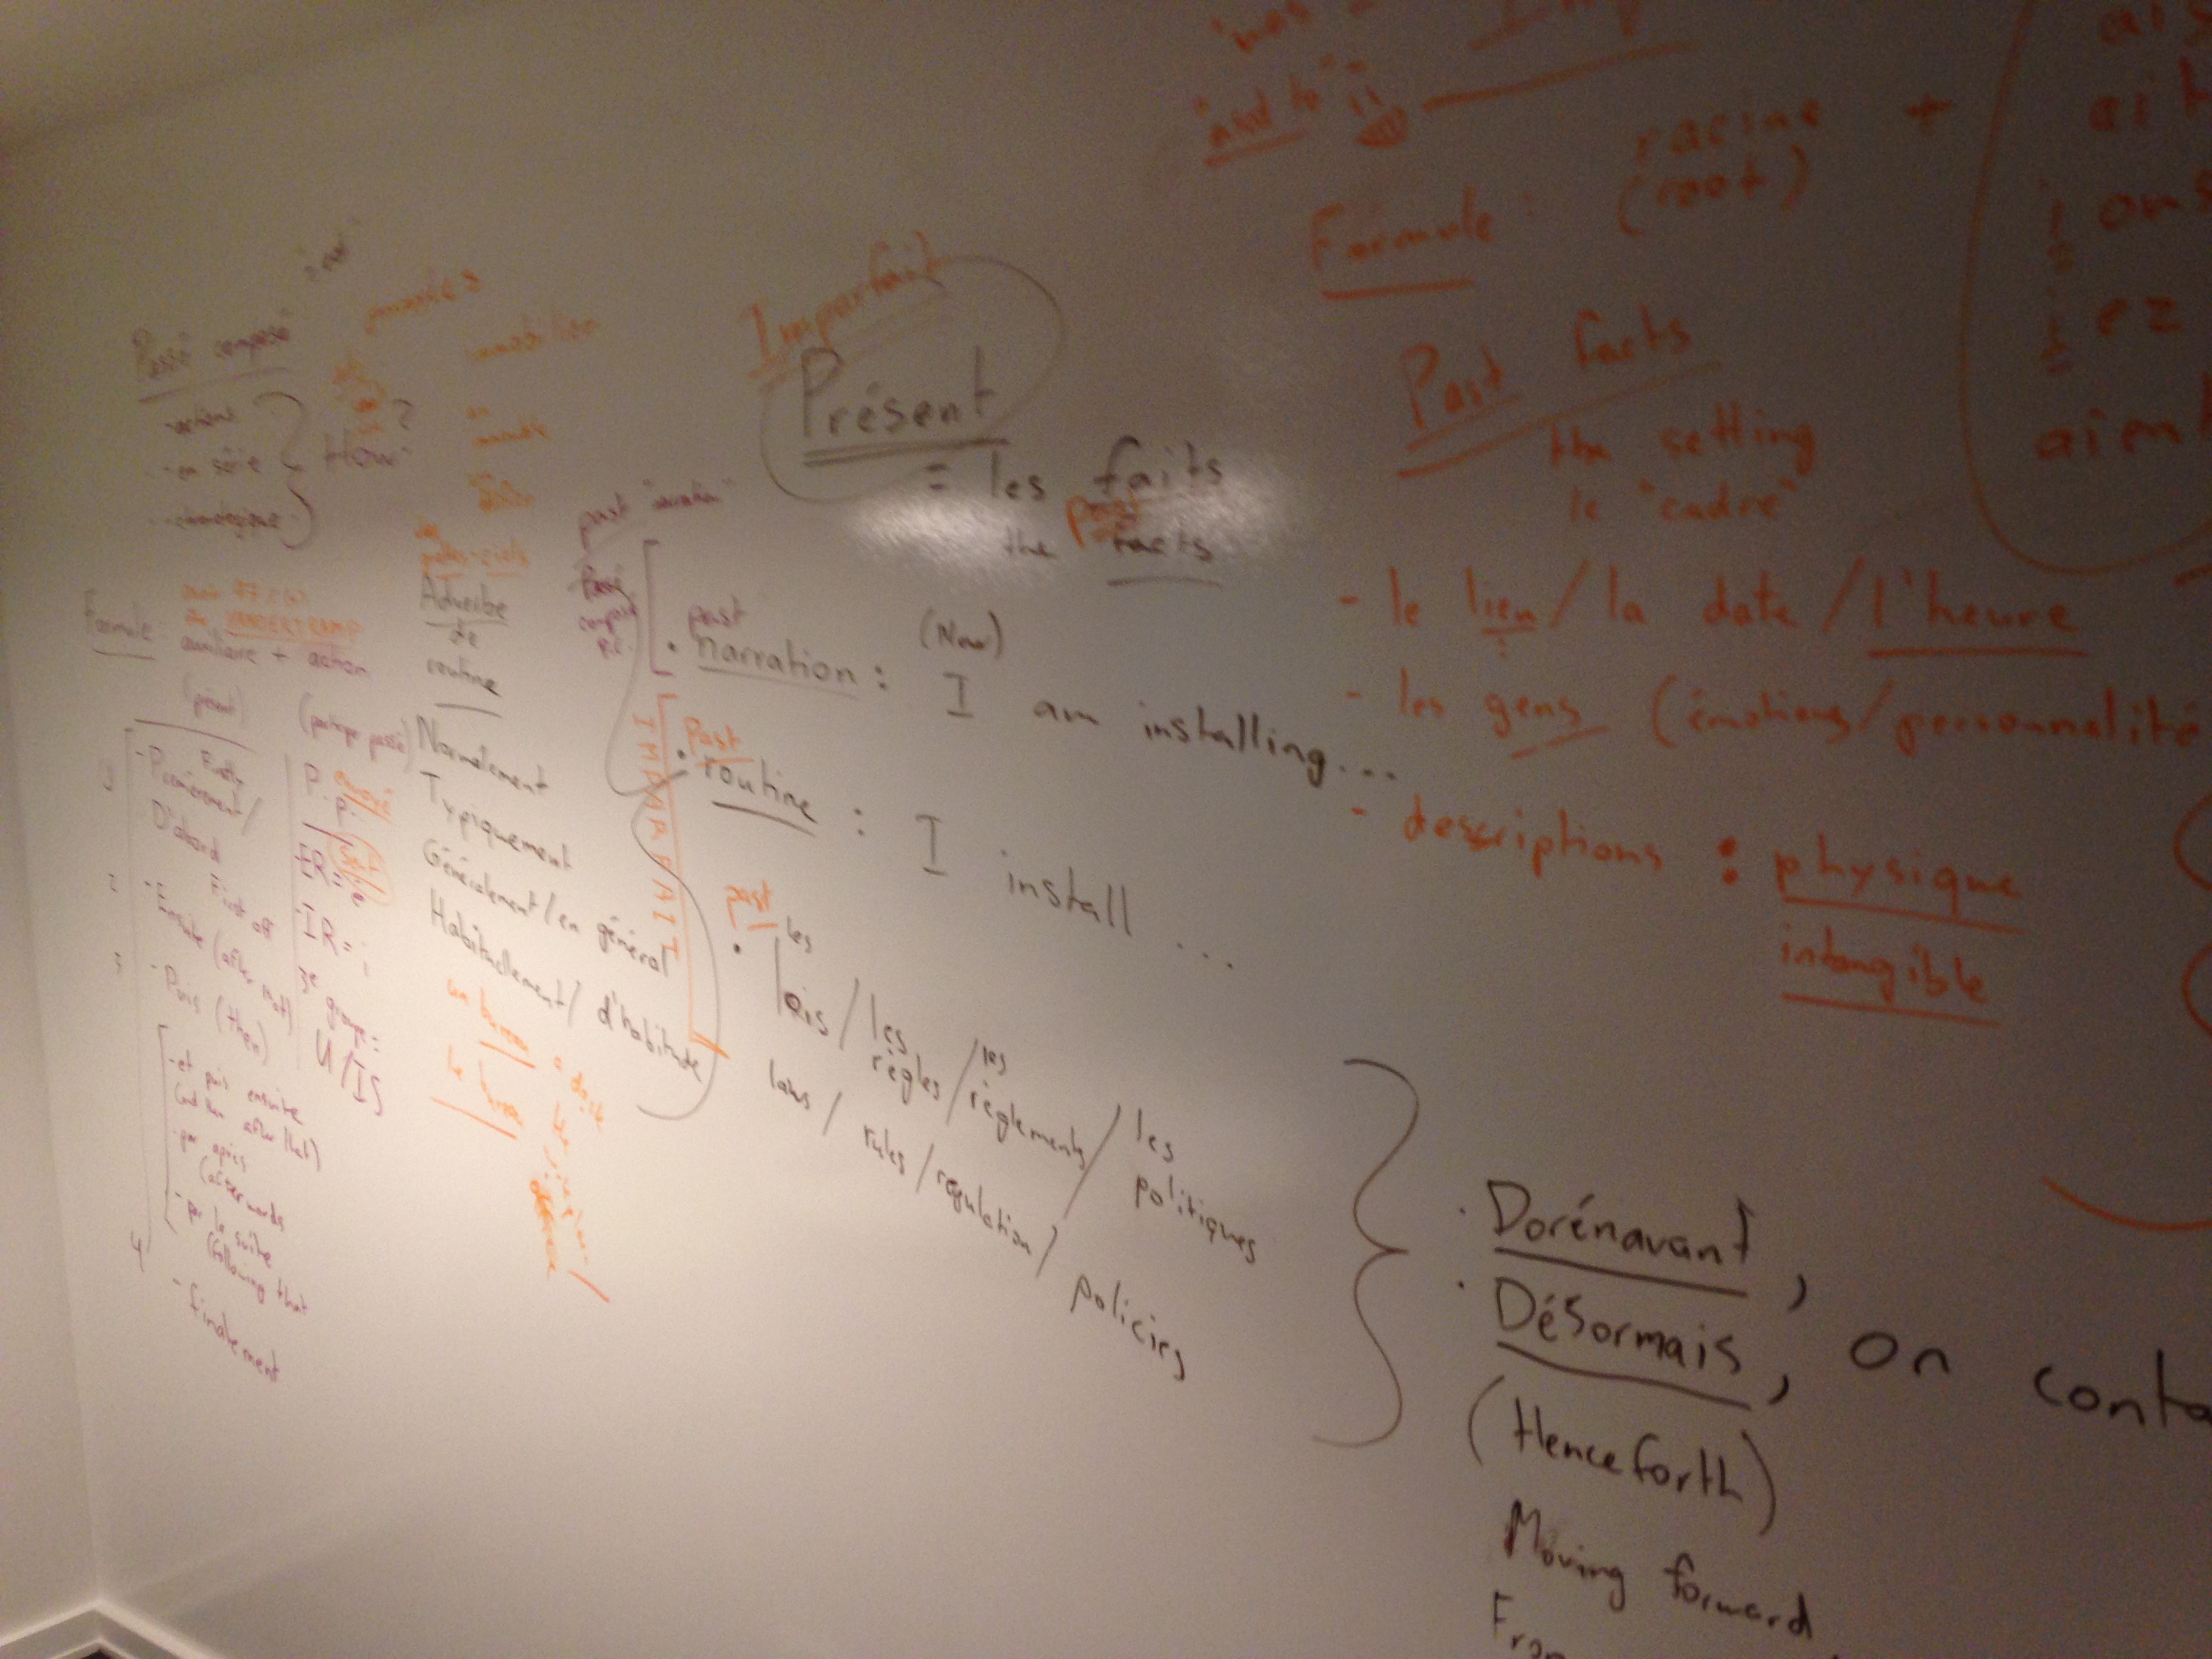 Passé composé
-actions
-en série
-chronologique
How?
Formule
VANDERTRAMP
auxiliaire + action
(présent)
(participe passé)
Firstly
-Premièrement/
D'abord
First off
-Ensuite (after that)
-Puis (then)
-et puis ensuite
(and then after that)
-par après
(afterwards
-par la suite
(following that
-finalement
P.P.
envoyé
ER=é
-IR=i
3e groupe=
U/IS
immobilier
un
Adverbe
de
routine
Normalement
Typiquement
Généralement/en général
Habituellement/d'habitude
un bureau
le bureau
Imparfait
Présent
= les faits
the past facts
past "narration"
Passé
composé
P.C.
past
• narration : (Now) I am installing...
IMPARFAIT
Past
• routine : I install ...
past
• les lois/les règles/les règlements/les politiques
laws/rules/regulation/policies
• Dorénavant,
• Désormais, on conta
(Henceforth)
Moving forward
Fro
Imp
"used to"
Formule : racine +
(root)
ais
ait
ions
iez
aient
Past facts
the setting
le "cadre"
- le lieu/la date/l'heure
- les gens (émotions/personnalité
- descriptions : physique
intangible